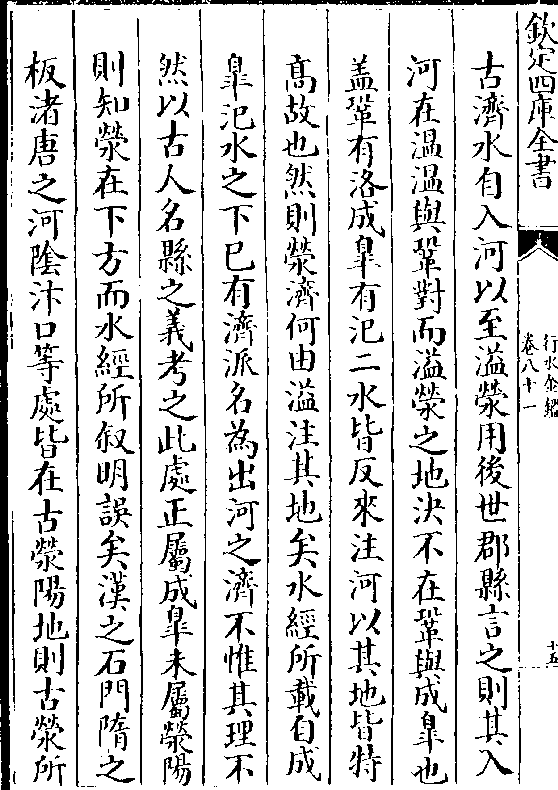 欽定四庫全書
行水金鑑
卷八十一
十五
古濟水自入河以至溢滎用後世郡縣言之則其入
河在温温與鞏對而溢滎之地決不在鞏與成臯也
盖鞏有洛成臯有汜二水皆反來注河以其地皆特
髙故也然則滎濟何由溢注其地矣水經所載自成
臯汜水之下已有濟派名為出河之濟不惟其理不
然以古人名縣之義考之此處正屬成臯未屬滎陽
則知滎在下方而水經所叙明誤矣漢之石門隋之
板渚唐之河陰汴口等處皆在古滎陽地則古滎所